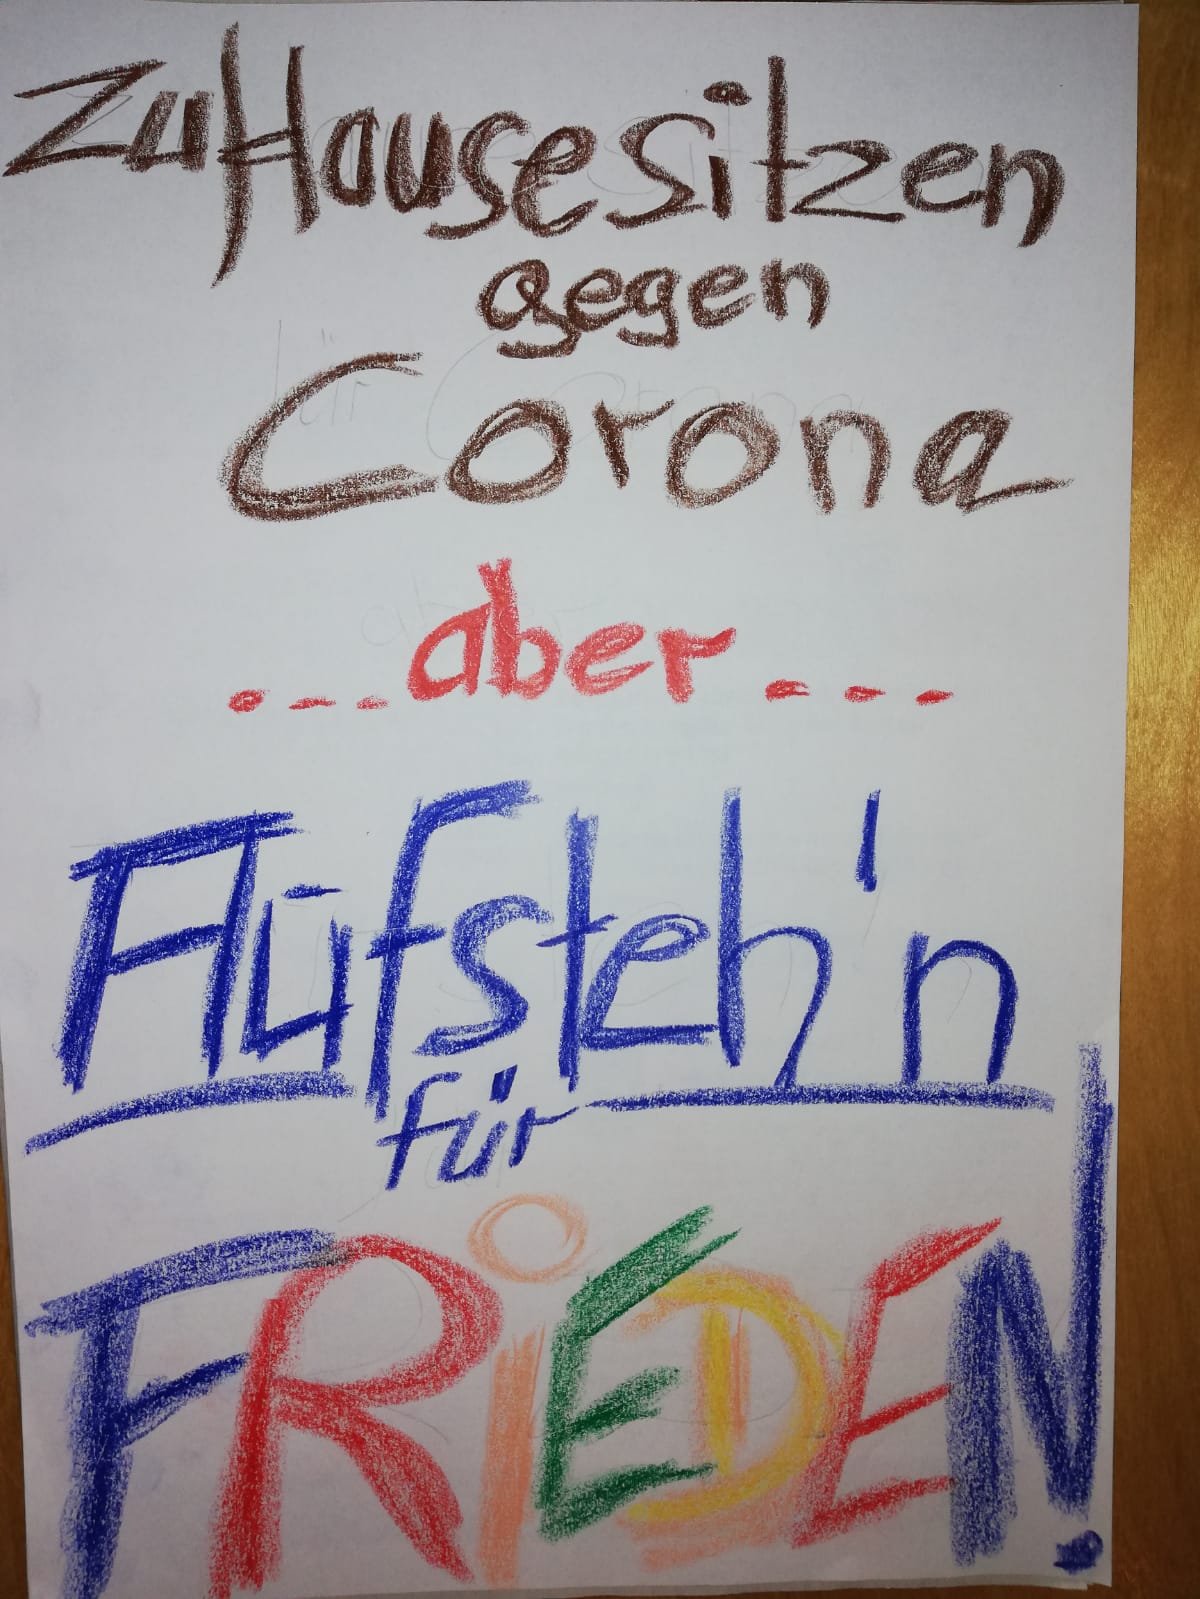 ZuHausesitzen
gegen
Corona
...aber...
Aufsteh'n
für
FRiEDEN!